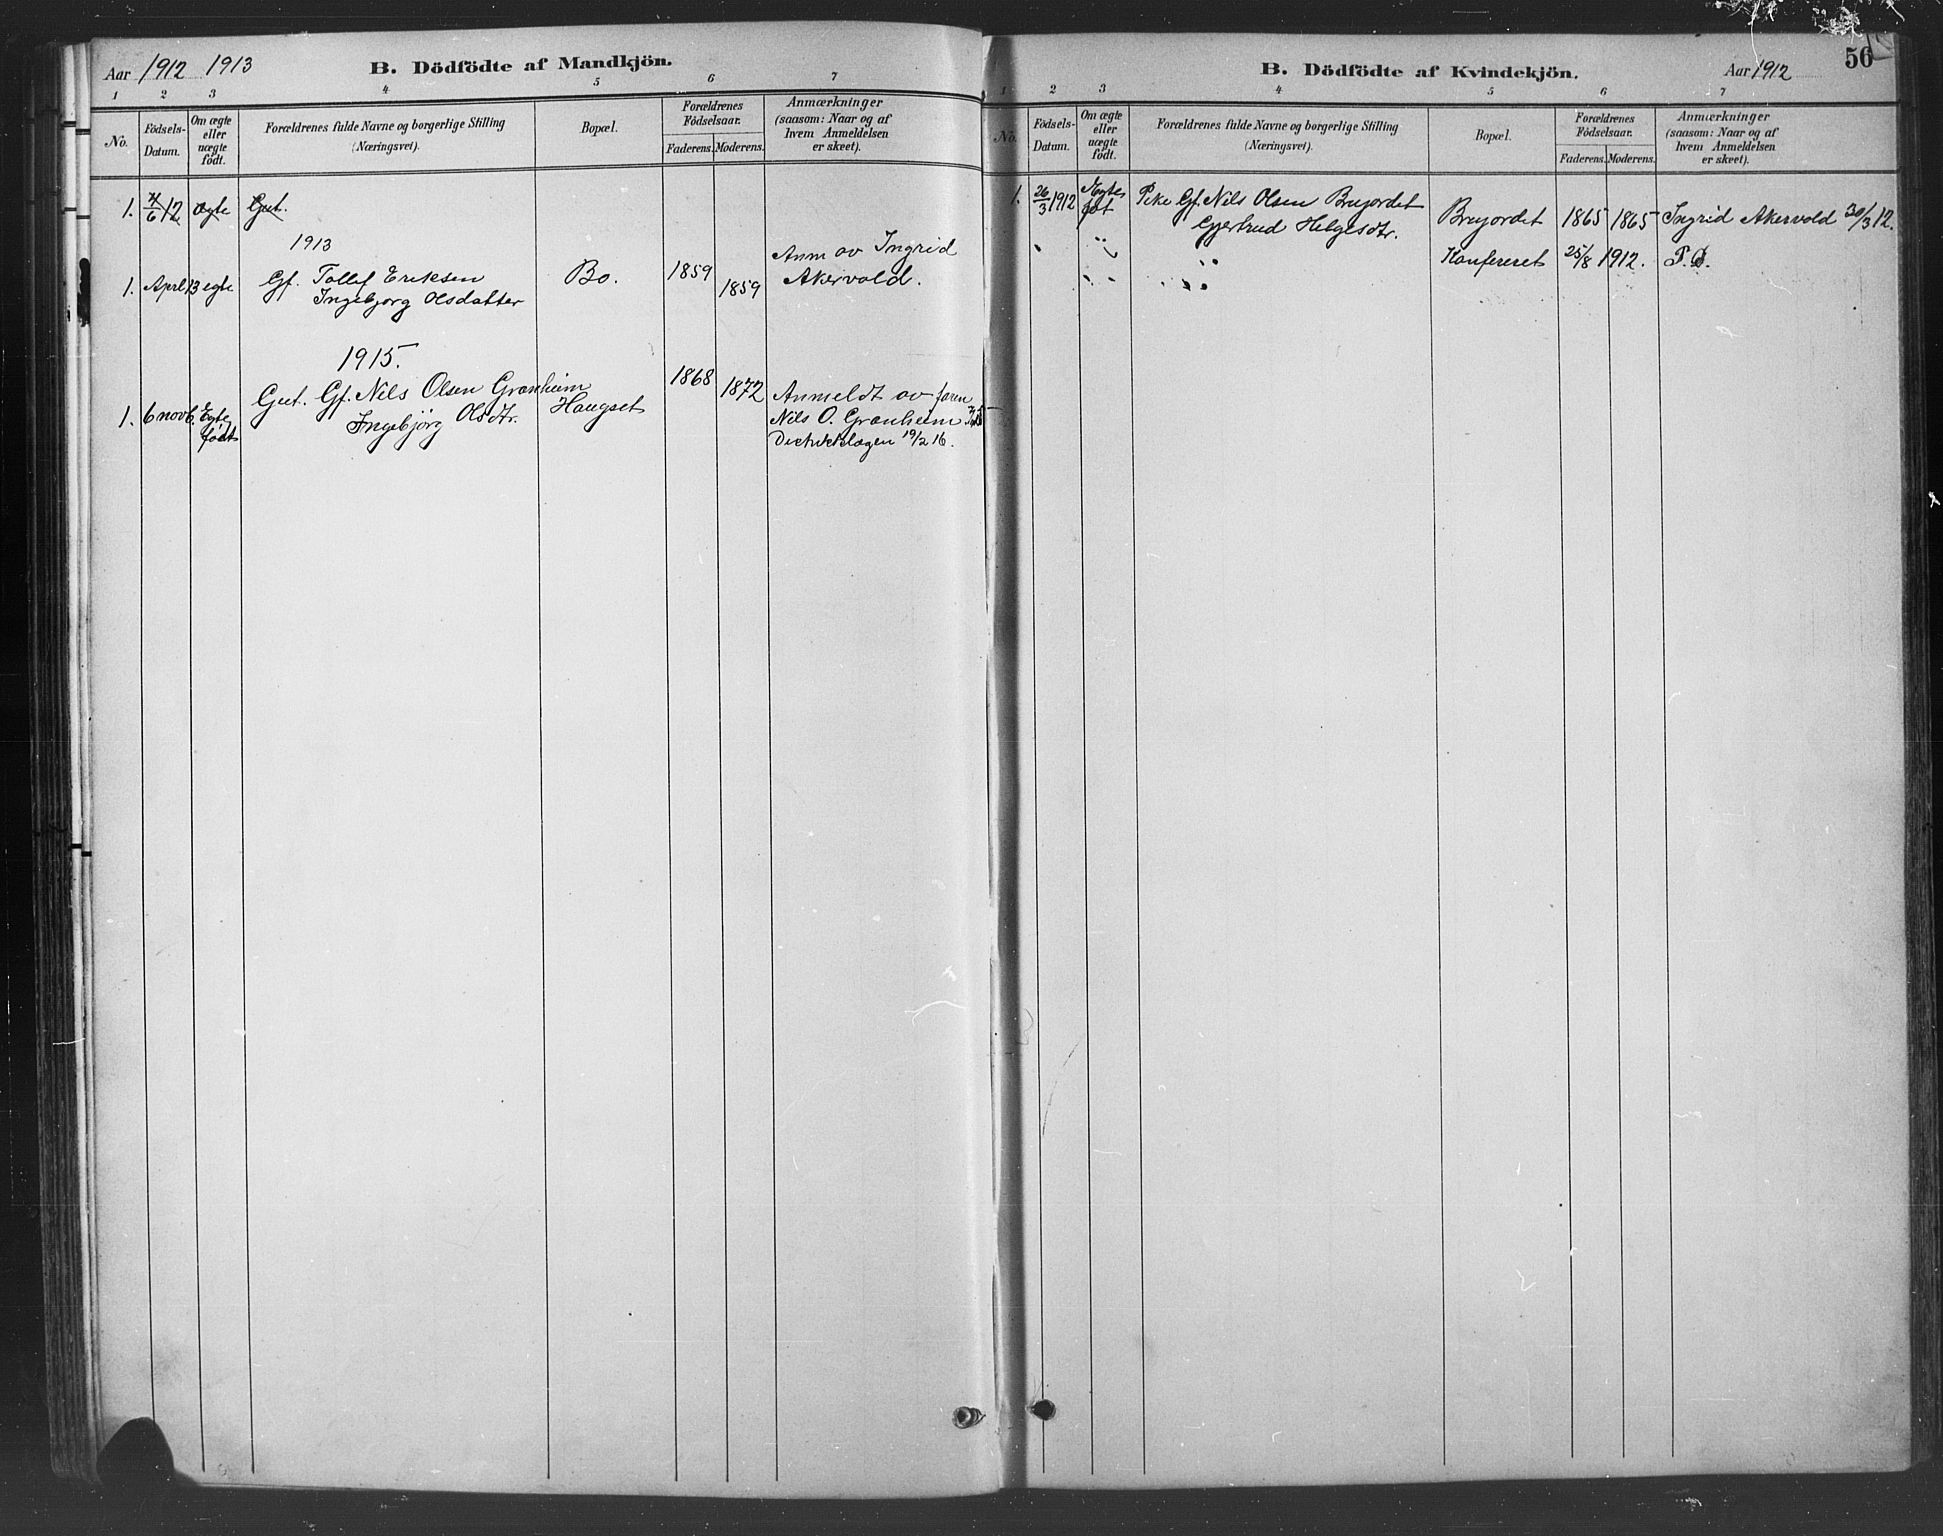 Aar 1912 1913
B. Dödfödte af Mandkjön.
1 2 3 4 5 6 7
No.
Födsels-
Datum.
Om ægte
eller
uægte
födt.
Forældrenes fulde Navne og borgerlige Stilling
(Næringsvei).
Bopæl.
Forældrenes
Födselsaar.
Faderens. Moderens.
Anmærkninger
(saasom: Naar og af
hvem Anmeldelsen
er skeet).
1. 4/6 12 ægte Gut.
1913
1. Aprl 13 egte Gf. Tollef Eriksen
Ingebjorg Olsdatter
Bo. 1859 1859
Anm av Ingrid
Akervold.
1915.
1. 6 novb. Egte
født
Gut. Gf. Nils Olsen Granheim
Ingebjörg Olsdtr.
Haugset 1868 1872
Anmeldt av faren
Nils O. Granheim
Distriktslægen 19/2 16.
B. Dödfödte af Kvindekjön.
Aar 1912
56
1 2 3 4 5 6 7
No.
Födsels-
Datum.
Om ægte
eller
uægte
födt.
Forældrenes fulde Navne og borgerlige Stilling
(Næringsvei).
Bopæl.
Forældrenes
Födselsaar.
Faderens. Moderens.
Anmærkninger
(saasom: Naar og af
hvem Anmeldelsen
er skeet).
1. 26/3 1912 Ægte
föt
Pike Gf. Nils Olsen Breijordet
Gjertrud Helgesdtr.
Breijordet 1865 1865 Ingrid Akervold 30/3 12.
Konfereret 25/8 1912.